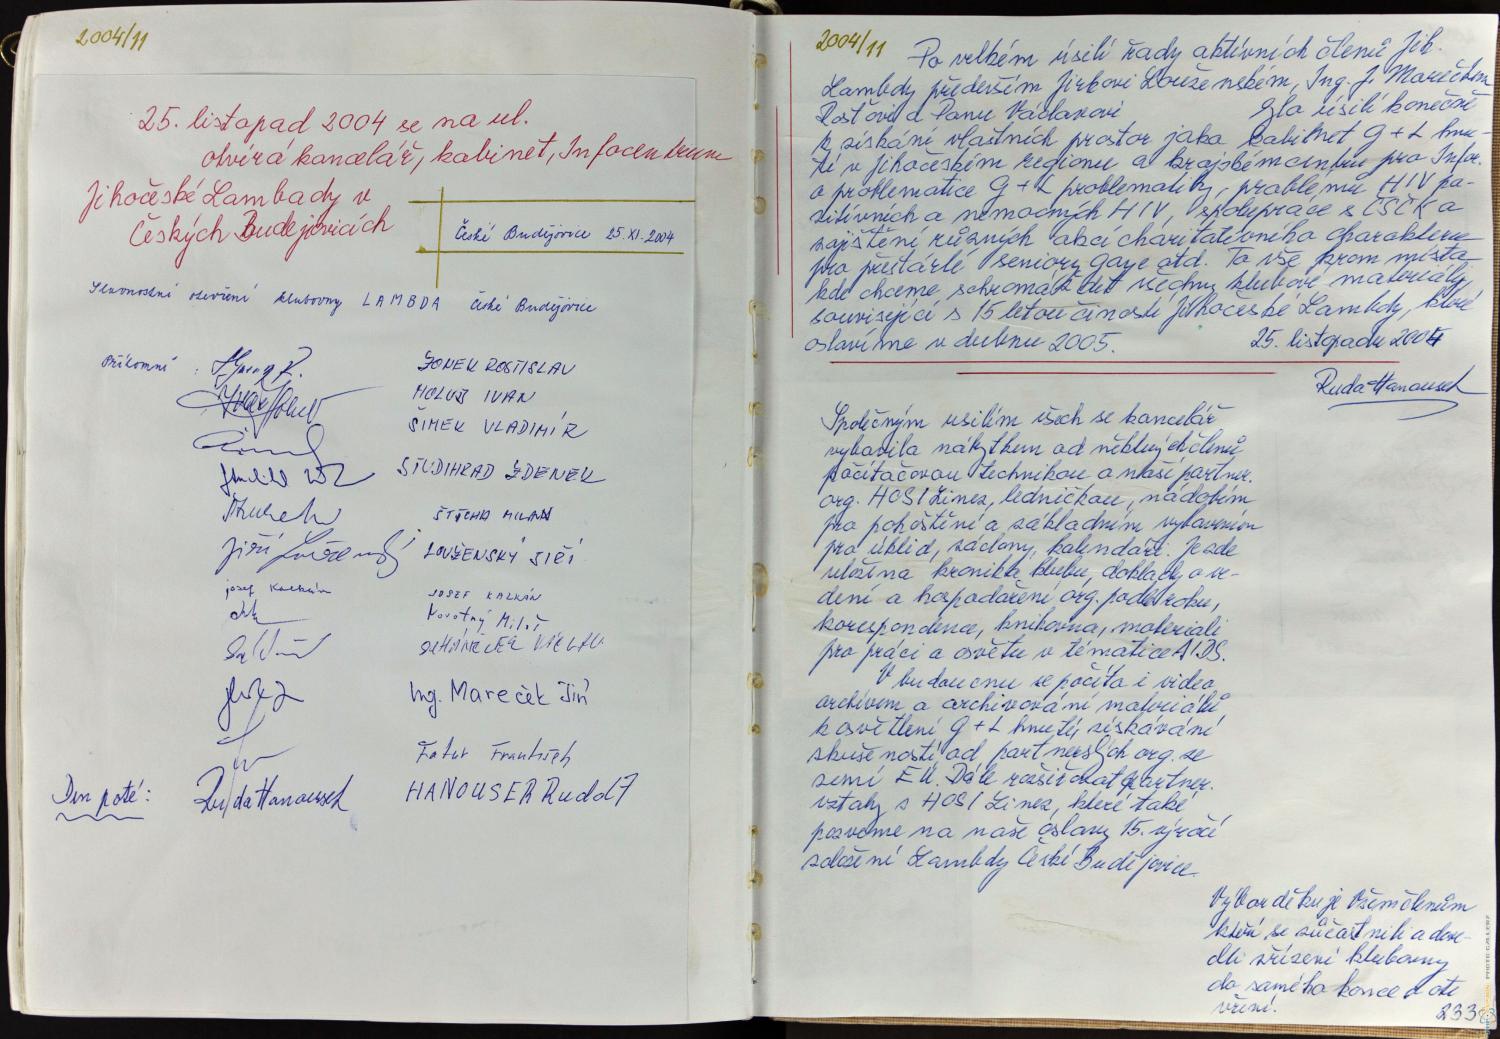 2004/11
25. listopad 2004 se na ul.
otvírá kancelář, kabinet, Infocentrum
Jihočeské Lambady v
Českých Budejovicích
České Budějovice 25.XI.2004
Slavnostní otevření klubovny LAMBDA České Budějovice
Přítomni:
ŽONEK ROSTISLAV
IVAN
ŠIMEK VLADIMÍR
STUDIHRAD ZDENEK
ŠTICHA MILAN
Jiří LOUŽENSKÝ JIŘÍ
Josef JOSEF KALKÁN
Novotný Miloš
VÁCLAV
Ing. Mareček Jiří
František
Den poté: Ruda Hanousek HANOUSEK Rudolf
2004/11
Po velkém úsilí řady aktivních členů Jih.
Lambdy především Jirkovi Louženském, Ing. J. Marečkem
Rosťovi a Panu Václavovi úsilí konečně
k získání vlastních prostor jako kabitnet G+L hnu-
tí v Jihočeském regionu a krajském centru pro Infor.
o problematice G+L problematiky, problému HIV po-
zitivních a nemocných HIV, spolupráce s ČSČK a
zajištění různých akcí charitativního charakteru
pro přestárlé seniory gaye atd. To vše krom místa
kde chceme schromáždit všechny klubové materiály
související s 15 letou činností Jihočeské Lambdy, které
oslavíme v dubnu 2005. 25. listopadu 2004
Ruda Hanousek
Společným usilím všech se kancelář
vybavila nábytkem od některých členů
počítačovou technikou a naší partner.
org. HOSI Linez, ledničkou, nádobím
pro pohoštění a základním vybavením
pro úklid, záclony, kalendáře. Je zde
uložena kronika klubu, doklady o ve-
dení a hospodaření org. podél roku,
korespondence, knihovna, materiali
pro práci a osvětu v tématice AIDS.
V budoucnu se počíta i video
archivem a archivování materiálů
k osvětlení G+L hnutí, získávání
skušeností od partnerských org. ze
zemí EU. Dále rozšiřovat partner.
vztahy s HOSI Linez, které také
pozveme na naše oslavy 15. výročí
založení Lambdy České Budějovice.
Výbor děkuje Všem členům
kteří se zůčastnili a dove-
dli zřízení klubovny
do samého konce a ote
vření.
233